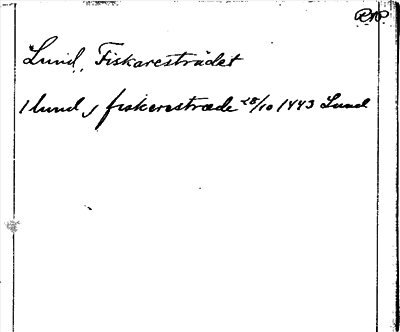 Lund, Fiskaresträdet
i lund j fiskerestræde 28/10 1443 Lund